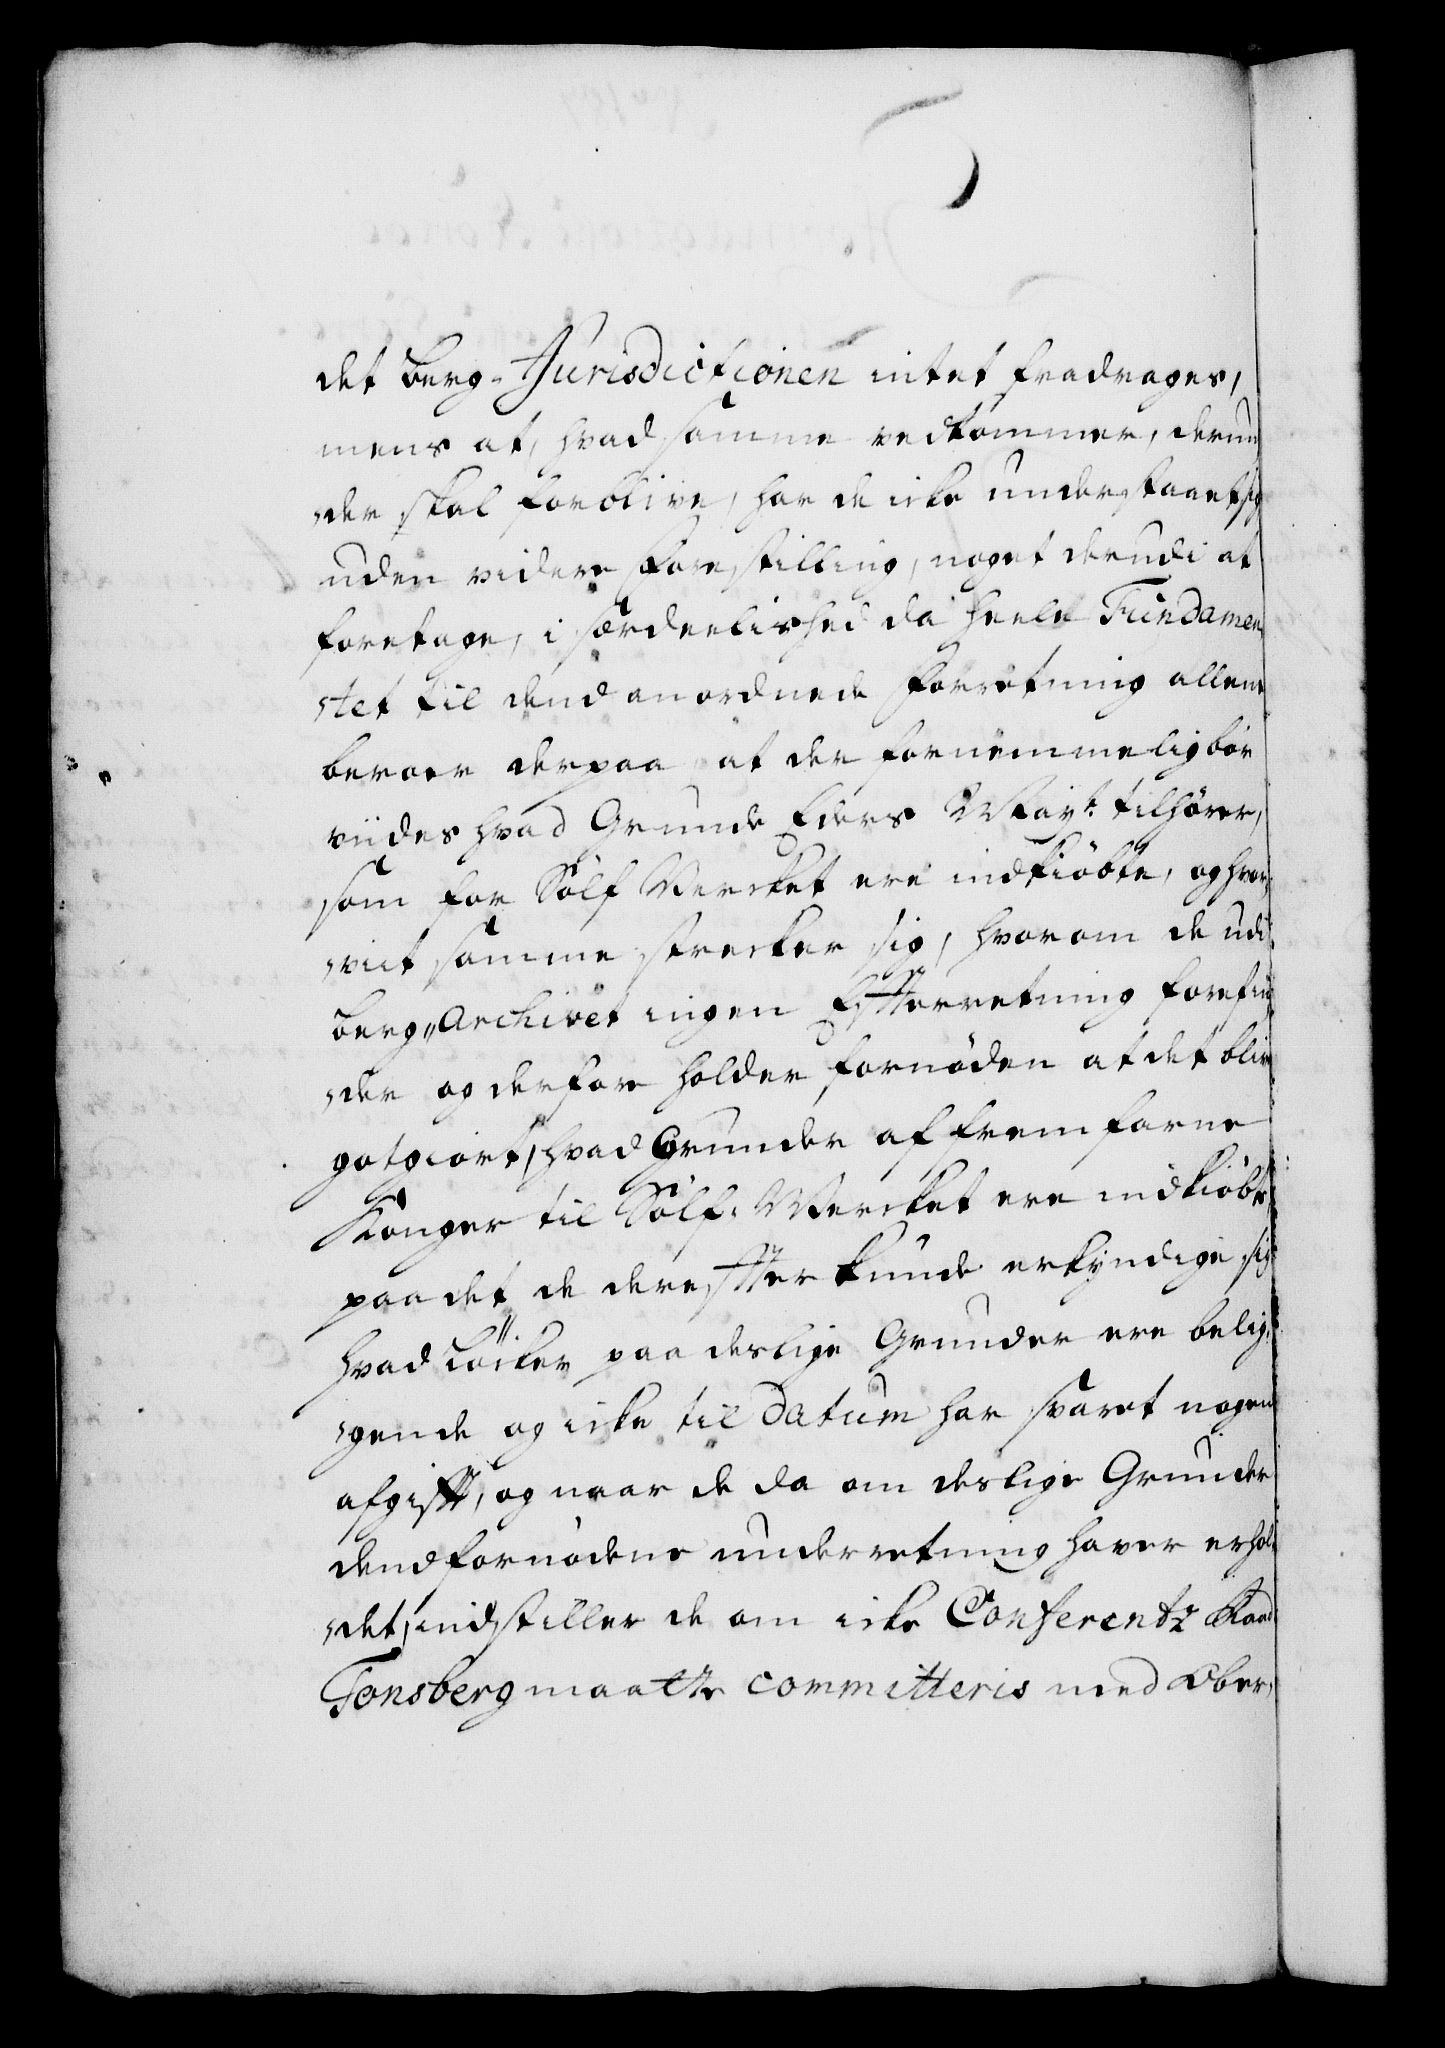 det Berg-Jurisdictionen intet fradrages,
mens at, hvad samme vedkommer, derun
der skal forblive, har de icke understaaet sig
uden videre Forestilling, noget derudi at
foretage, i særdeelished da heele Fundamen
tet til dend anordnede Forretning allene
beroer derpaa at der fornemmelig bör
viides hvad Grunde Eders Mayt. tilhörer,
som for Sölf Wercket ere indkiöbte, og hvor
viit samme strecker sig, hvorom de udi
Berg-Archivet ingen Efterretning forefin
der og derfore holder fornöden at det blive
gotgiort, hvad Grunder af fremfarne
Konger til Sölf-Wercket ere indkiöbte,
paa det de derefter kunde erkyndige sig
hvad Löcker paa deslige Grunder ere belig
gende og icke til Datum har svaret nogen
afgift, og naar de da om deslige Grunder
dend fornödene underretning haver erhol
det, indstiller de om icke Conferentz Raad
Tonsberg maatte committeris med Ober,